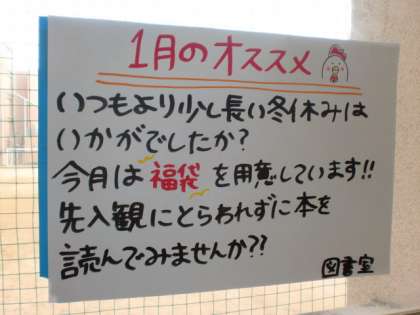 1月のオススメ
いつもより少し長い冬休みは
いかがでしたか?
今月は福袋を用意しています!!
先入観にとらわれずに本を
読んでみませんか??
図書室